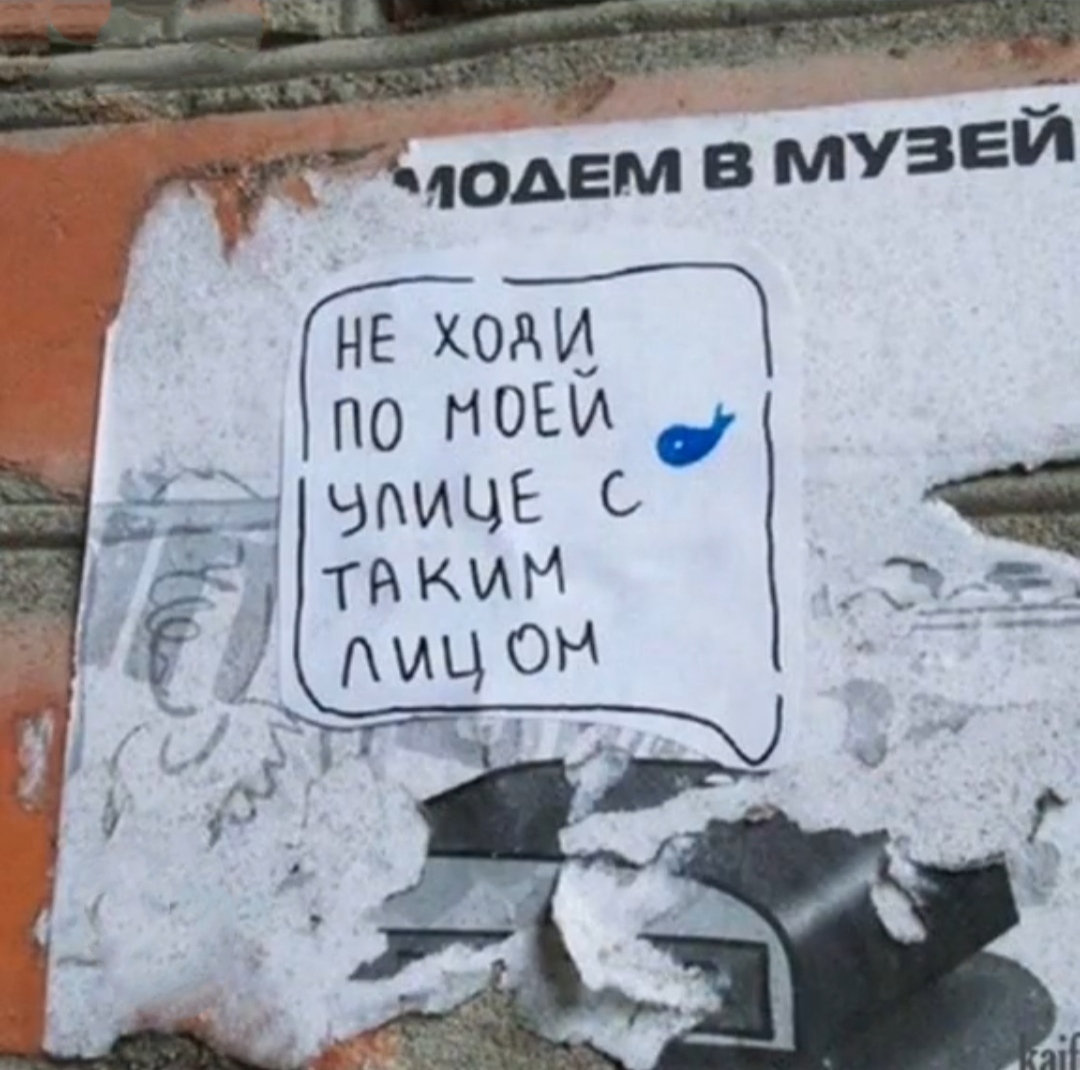 МОДЕМ В МУЗЕЙ
НЕ ХОДИ
ПО МОЕЙ
УЛИЦЕ С
ТАКИМ
ЛИЦОМ
kaif